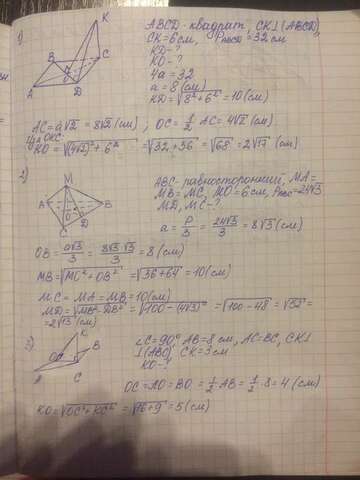 1)
K
B
C
O
A
D
ABCD - квадрат, CK⊥(ABCD),
CK=6см, P_ABCD=32см
KD-?
KO-?
4a=32
a=8(см)
KD=√(8²+6²)=10(см)
AC=a√2=8√2(см); OC=1/2 AC=4√2(см)
Из OKC
KO=√((4√2)²+6²)=√(32+36)=√68=2√17(см)
2)
M
A
B
O
D
C
ABC-равносторонний, MA=
=MB=MC, MO=6см, P_ABC=24√3
MD, MC-?
a=P/3=24√3/3=8√3(см)
OB=a√3/3=8√3·√3/3=8(см)
MB=√(MO²+OB²)=√(36+64)=10(см)
MC=MA=MB=10(см)
MD=√(MB²-DB²)=√(100-(4√3)²)=√(100-48)=√52=
=2√13(см)
3)
K
B
O
A
C
∠C=90° AB=8см, AC=BC, CK⊥
⊥(ABC) CK=3см
KO-?
OC=AO=BO=1/2·AB=1/2·8=4(см)
KO=√(OC²+KC²)=√(16+9)=5(см)